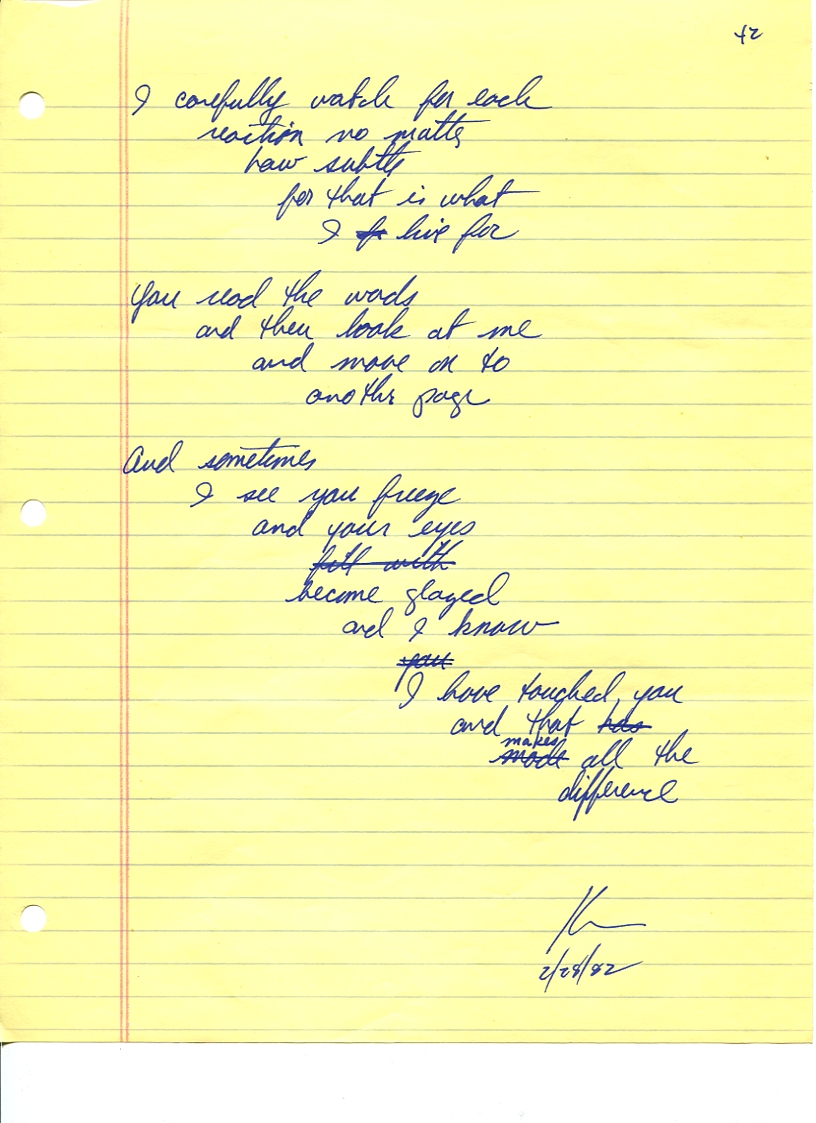 42
I carefully watch for each
reaction no matter
how subtle
for that is what
I live for
You read the words
and then look at me
and move on to
another page
And sometimes
I see you freeze
and your eyes
fill with
become glazed
and I know
you
I have touched you
and that has
makes
made all the
difference
2/28/82